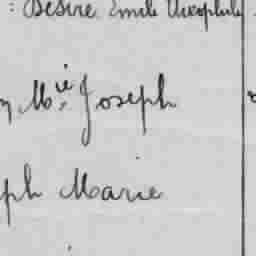 : Désiré Emile Théophile
M.ie Joseph
ph Marie